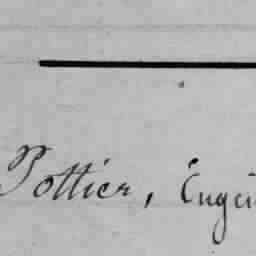 Pottier, Eugèn